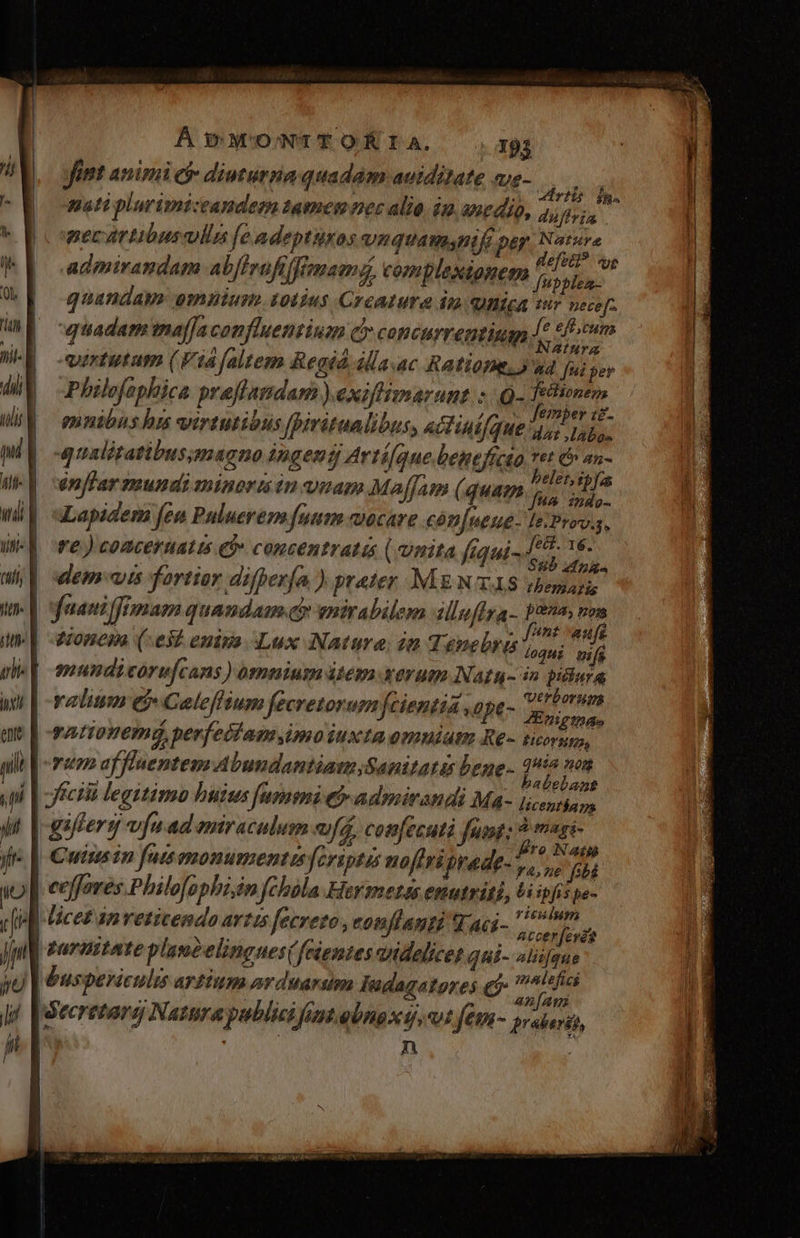 ADMONITORIA. 193
sint animi & diuturna quadam auiditate ve-
nati plurimi: eandem tamen nec alio in medio,
nec artibus vllis se adepturos vnquam, nisi per
admirandam abstrusissimamq́, complexionem
quandam omnium totius Creatura in vnica
quadam massa confluentium & concurrentium
virtutum (Viâ saltem Regiâ illa ac Ratione
Philosophica præstandam) existimarunt: Q-
mnibus his virtutibus spiritualibus, actiuisque
qualitatibus, magno ingenij Artisque beneficio
instar mundi minoris in vnam Massam (quam
Lapidem seu Puluerem suum vocare consueue-
re) coaceruatis & concentratis (vnita siqui-
dem vis fortior dispersa) præter MENTIS
suauissimam quandam & mirabilem illustra-
tionem (est enim Lux Naturæ, in Tenebris
mundi coruscans) omnium item rerum Natu-
ralium & Cælestium secretorum scientiâ, ope-
rationemq́, perfectam, imo iuxta omnium Re-
rum affluentem Abundantiam, Sanitatis bene-
ficiū legitimo huius summi & admirandi Ma-
gisterij vsu ad miraculum vsq́, consecuti sunt:
Cuius in suis monumentis scriptis nostri præde-
cessores Philosophi, in schola Hermetis enutriti,
licet in reticendo artis secreto, constanti Taci-
turnitate planè elingues (scientes videlicet qui-
bus periculis artium arduarum Indagatores &
Secretarij Naturæ publici sint obnoxij, vt sem-
n
Artis in-
dustria
Naturæ
defect⁹ vt
supplea-
tur neces-
se est, cum
Natura
ad sui per
fectionem
semper ti-
dat, labo-
ret & an-
helet, ipsa
sua indo-
le. Prov. 3.
sect. 16.
Sub
thematis
pœna, non
sunt ausi
loqui nisi
in pictura
verborum
Ænigma-
ticorum,
quia non
habebant
licentiam
à magi-
stro Natu
ra, ne sibi
ipsis pe-
riculum
accerserēt
aliisque
malefici
ansam
præberēt,